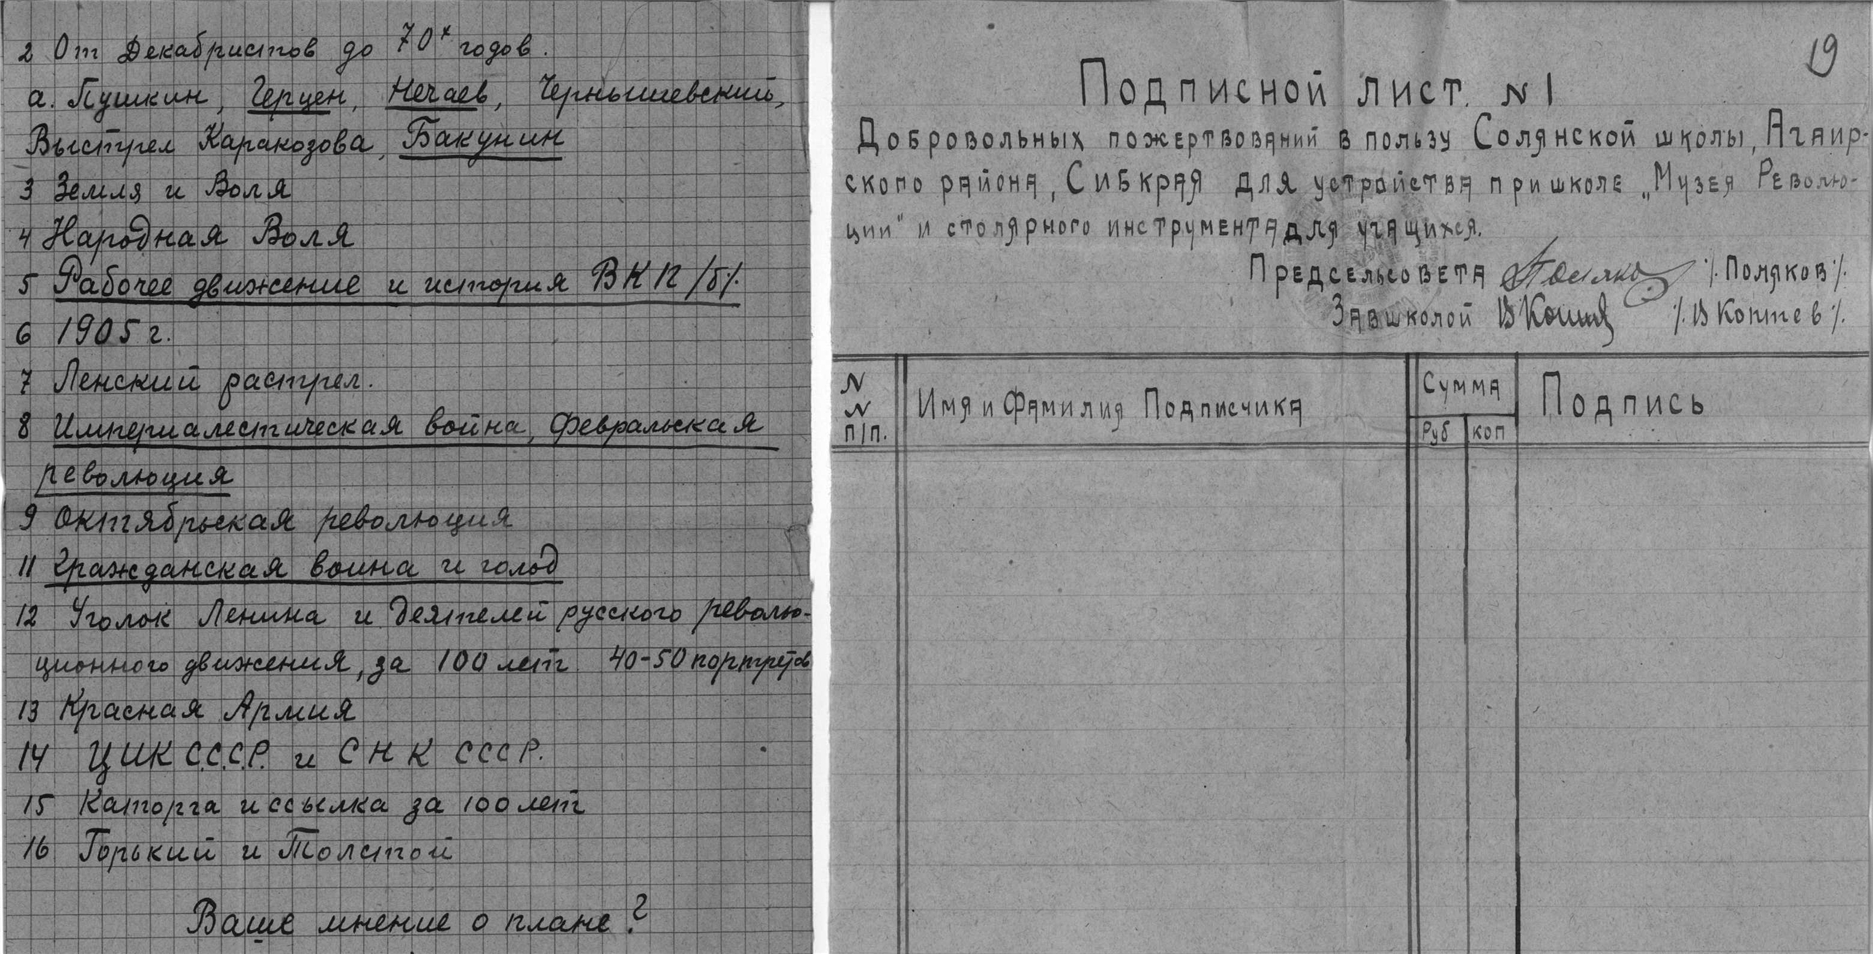 2 От Декабристов до 70х годов.
а. Пушкин, Герцен, Нечаев, Чернышевский,
Выстрел Каракозова, Бакунин
3 Земля и Воля
4 Народная Воля
5 Рабочее движение и история ВКП/б/.
6 1905 г.
7 Ленский растрел.
8 Империалестическая война, Февральская
революция
9 Октябрьская революция
11 Гражданская воина и голод
12 Уголок Ленина и деятелей русского револю-
ционного движения, за 100 лет 40-50 портретов
13 Красная Армия
14 ЦИК С.С.С.Р. и СНК СССР.
15 Каторга и ссылка за 100 лет
16 Горький и Толстой
Ваше мнение о плане?
19
Подписной лист. N 1
Добровольных пожертвований в пользу Солянской школы, Ачаир-
ского района, Сибкрая для устройства при школе „Музея Револю-
ции" и столярного инструмента для учащихся.
Предсельсовета Поляков /.Поляков/.
Завшколой /.В Коптев/.
N
N
п/п.
Имя и Фамилия Подписчика
Сумма
Руб коп
Подпись